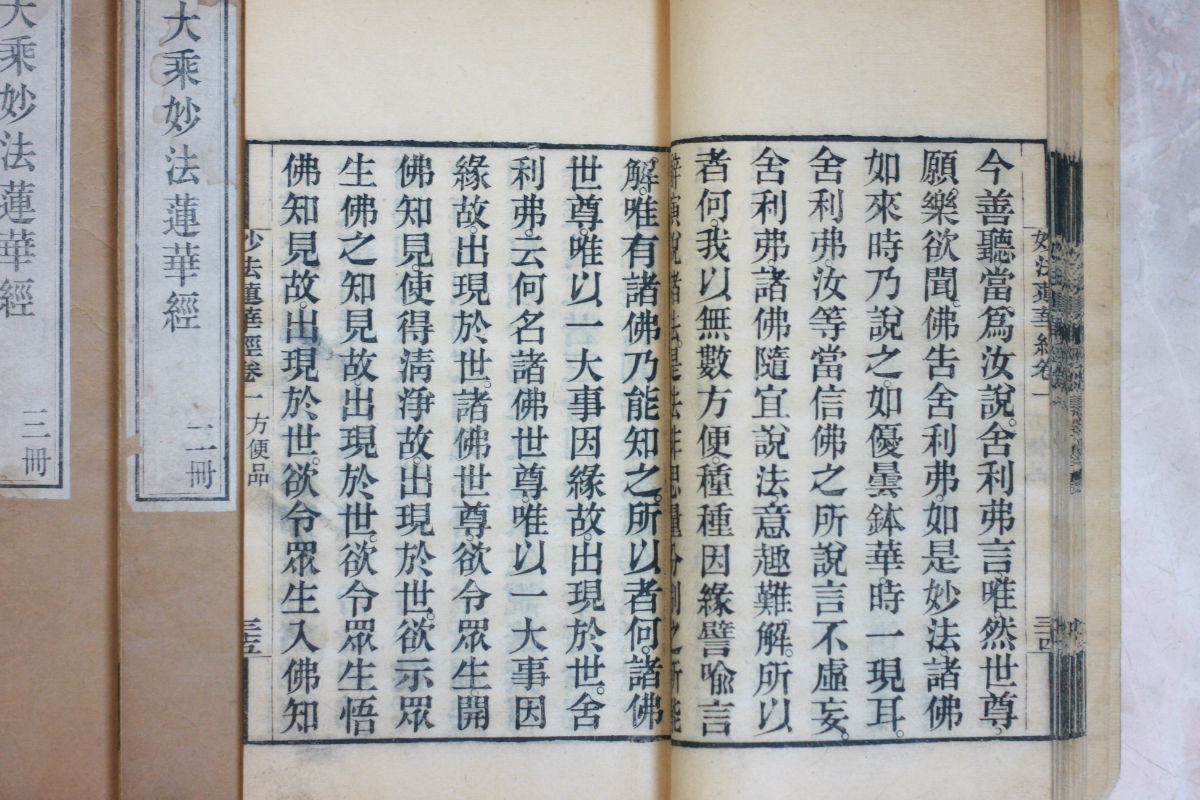 今善聽當爲汝說。舍利弗言唯然世尊。
願樂欲聞。佛告舍利弗。如是妙法諸佛
如來時乃說之。如優曇鉢華時一現耳。
舍利弗汝等當信佛之所說言不虛妄。
舍利弗。諸佛隨宜說法意趣難解。所以
者何。我以無數方便。種種因緣譬喻言
辭演說諸法。是法非思量分別之所能
解。唯有諸佛乃能知之。所以者何。諸佛
世尊。唯以一大事因緣故。出現於世。舍
利弗。云何名諸佛世尊。唯以一大事因
緣故。出現於世。諸佛世尊。欲令眾生。開
佛知見。使得清淨故。出現於世。欲示眾
生佛之知見故。出現於世。欲令眾生悟
佛知見故。出現於世。欲令眾生入佛知
妙法蓮華經卷一
三十四
妙法蓮華經卷一 方便品
三十五
大乘妙法蓮華經
二冊
大乘妙法蓮華經
三冊